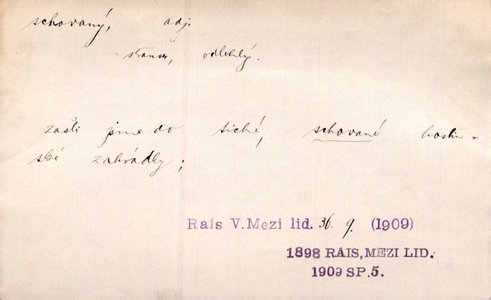 schovaný, adj.
stranou, odlehlý.
zašli jsme do tiché, schované hostin-
ské zahrádky;
Rais V. Mezi lid. 36. 9. (1909)
1898 RAIS, MEZI LID.
1909 SP. 5.